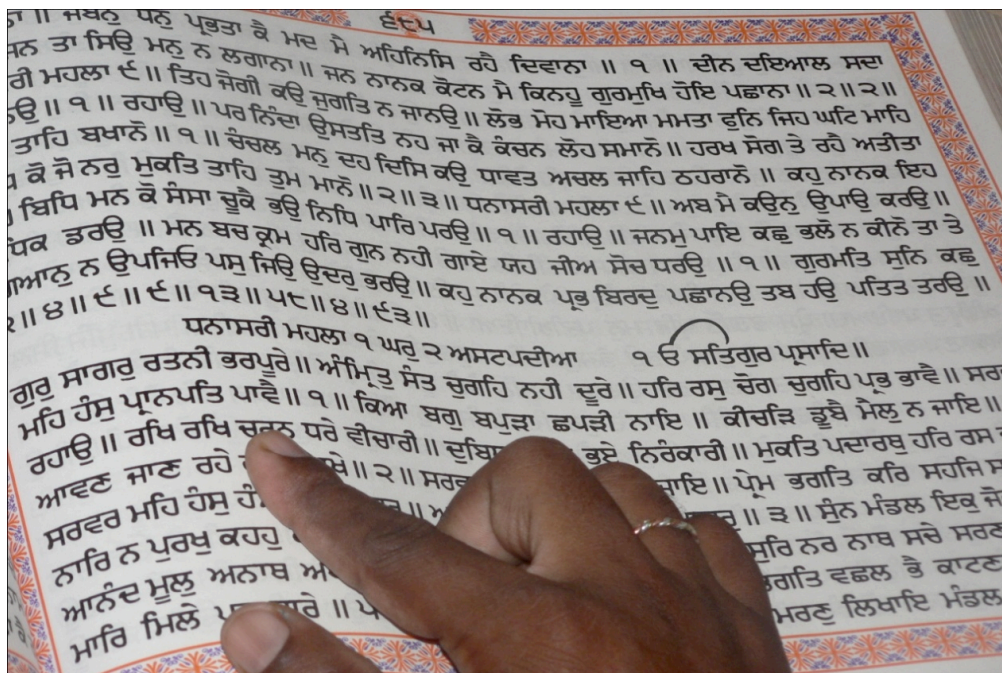 ੬੮੫
ਤਾ ॥ ਜੋਬਨੁ ਧਨੁ ਪ੍ਰਭਤਾ ਕੈ ਮਦ ਮੈ ਅਹਿਨਿਸਿ ਰਹੈ ਦਿਵਾਨਾ ॥ ੧ ॥ ਦੀਨ ਦਇਆਲ ਸਦਾ
ਜਨ ਤਾ ਸਿਉ ਮਨੁ ਨ ਲਗਾਨਾ ॥ ਜਨ ਨਾਨਕ ਕੋਟਨ ਮੈ ਕਿਨਹੂ ਗੁਰਮੁਖਿ ਹੋਇ ਪਛਾਨਾ ॥ ੨ ॥ ੨ ॥
ਰੀ ਮਹਲਾ ੯ ॥ ਤਿਹ ਜੋਗੀ ਕਉ ਜੁਗਤਿ ਨ ਜਾਨਉ ॥ ਲੋਭ ਮੋਹ ਮਾਇਆ ਮਮਤਾ ਫੁਨਿ ਜਿਹ ਘਟਿ ਮਾਹਿ
ਉ ॥ ੧ ॥ ਰਹਾਉ ॥ ਪਰ ਨਿੰਦਾ ਉਸਤਤਿ ਨਹ ਜਾ ਕੈ ਕੰਚਨ ਲੋਹ ਸਮਾਨੋ ॥ ਹਰਖ ਸੋਗ ਤੇ ਰਹੈ ਅਤੀਤਾ
ਤਾਹਿ ਬਖਾਨੋ ॥ ੧ ॥ ਚੰਚਲ ਮਨੁ ਦਹ ਦਿਸਿ ਕਉ ਧਾਵਤ ਅਚਲ ਜਾਹਿ ਠਹਰਾਨੋ ॥ ਕਹੁ ਨਾਨਕ ਇਹ
ਕੋ ਜੋ ਨਰੁ ਮੁਕਤਿ ਤਾਹਿ ਤੁਮ ਮਾਨੋ ॥ ੨ ॥ ੩ ॥ ਧਨਾਸਰੀ ਮਹਲਾ ੯ ॥ ਅਬ ਮੈ ਕਉਨੁ ਉਪਾਉ ਕਰਉ ॥
ਬਿਧਿ ਮਨ ਕੋ ਸੰਸਾ ਚੂਕੈ ਭਉ ਨਿਧਿ ਪਾਰਿ ਪਰਉ ॥ ੧ ॥ ਰਹਾਉ ॥ ਜਨਮੁ ਪਾਇ ਕਛੁ ਭਲੋ ਨ ਕੀਨੋ ਤਾ ਤੇ
ਧਿਕ ਡਰਉ ॥ ਮਨ ਬਚ ਕ੍ਰਮ ਹਰਿ ਗੁਨ ਨਹੀ ਗਾਏ ਯਹ ਜੀਅ ਸੋਚ ਧਰਉ ॥ ੧ ॥ ਗੁਰਮਤਿ ਸੁਨਿ ਕਛੁ
ਗਿਆਨੁ ਨ ਉਪਜਿਓ ਪਸੁ ਜਿਉ ਉਦਰੁ ਭਰਉ ॥ ਕਹੁ ਨਾਨਕ ਪ੍ਰਭ ਬਿਰਦੁ ਪਛਾਨਉ ਤਬ ਹਉ ਪਤਿਤ ਤਰਉ ॥
੨ ॥ ੪ ॥ ੯ ॥ ੯ ॥ ੧੩ ॥ ੫੮ ॥ ੪ ॥ ੯੩ ॥
ਧਨਾਸਰੀ ਮਹਲਾ ੧ ਘਰੁ ੨ ਅਸਟਪਦੀਆ ੴ ਸਤਿਗੁਰ ਪ੍ਰਸਾਦਿ ॥
ਗੁਰੁ ਸਾਗਰੁ ਰਤਨੀ ਭਰਪੂਰੇ ॥ ਅੰਮ੍ਰਿਤੁ ਸੰਤ ਚੁਗਹਿ ਨਹੀ ਦੂਰੇ ॥ ਹਰਿ ਰਸੁ ਚੋਗ ਚੁਗਹਿ ਪ੍ਰਭ ਭਾਵੈ ॥ ਸਰ
ਮਹਿ ਹੰਸੁ ਪ੍ਰਾਨਪਤਿ ਪਾਵੈ ॥ ੧ ॥ ਕਿਆ ਬਗੁ ਬਪੁੜਾ ਛਪੜੀ ਨਾਇ ॥ ਕੀਚੜਿ ਡੂਬੈ ਮੈਲੁ ਨ ਜਾਇ ॥
ਰਹਾਉ ॥ ਰਖਿ ਰਖਿ ਚਰਨ ਧਰੇ ਵੀਚਾਰੀ ॥ ਦੁਬਿ ਭਏ ਨਿਰੰਕਾਰੀ ॥ ਮੁਕਤਿ ਪਦਾਰਥੁ ਹਰਿ ਰਸ
ਆਵਣ ਜਾਣ ਰਹੇ ਖੇ ॥ ੨ ॥ ਸਰਵ ਜਾਇ ॥ ਪ੍ਰੇਮ ਭਗਤਿ ਕਰਿ ਸਹਜਿ ਸ
ਸਰਵਰ ਮਹਿ ਹੰਸੁ ਹੰ ॥ ੩ ॥ ਸੁੰਨ ਮੰਡਲ ਇਕੁ ਜੋ
ਨਾਰਿ ਨ ਪੁਰਖੁ ਕਹਹੁ ਸੁਰਿ ਨਰ ਨਾਥ ਸਚੇ ਸਰਣ
ਆਨੰਦ ਮੂਲੁ ਅਨਾਥ ਅ ਭਗਤਿ ਵਛਲ ਭੈ ਕਾਟਣ
ਮਾਰਿ ਮਿਲੇ ਰੇ ॥ ਮਰਣੁ ਲਿਖਾਇ ਮੰਡਲ